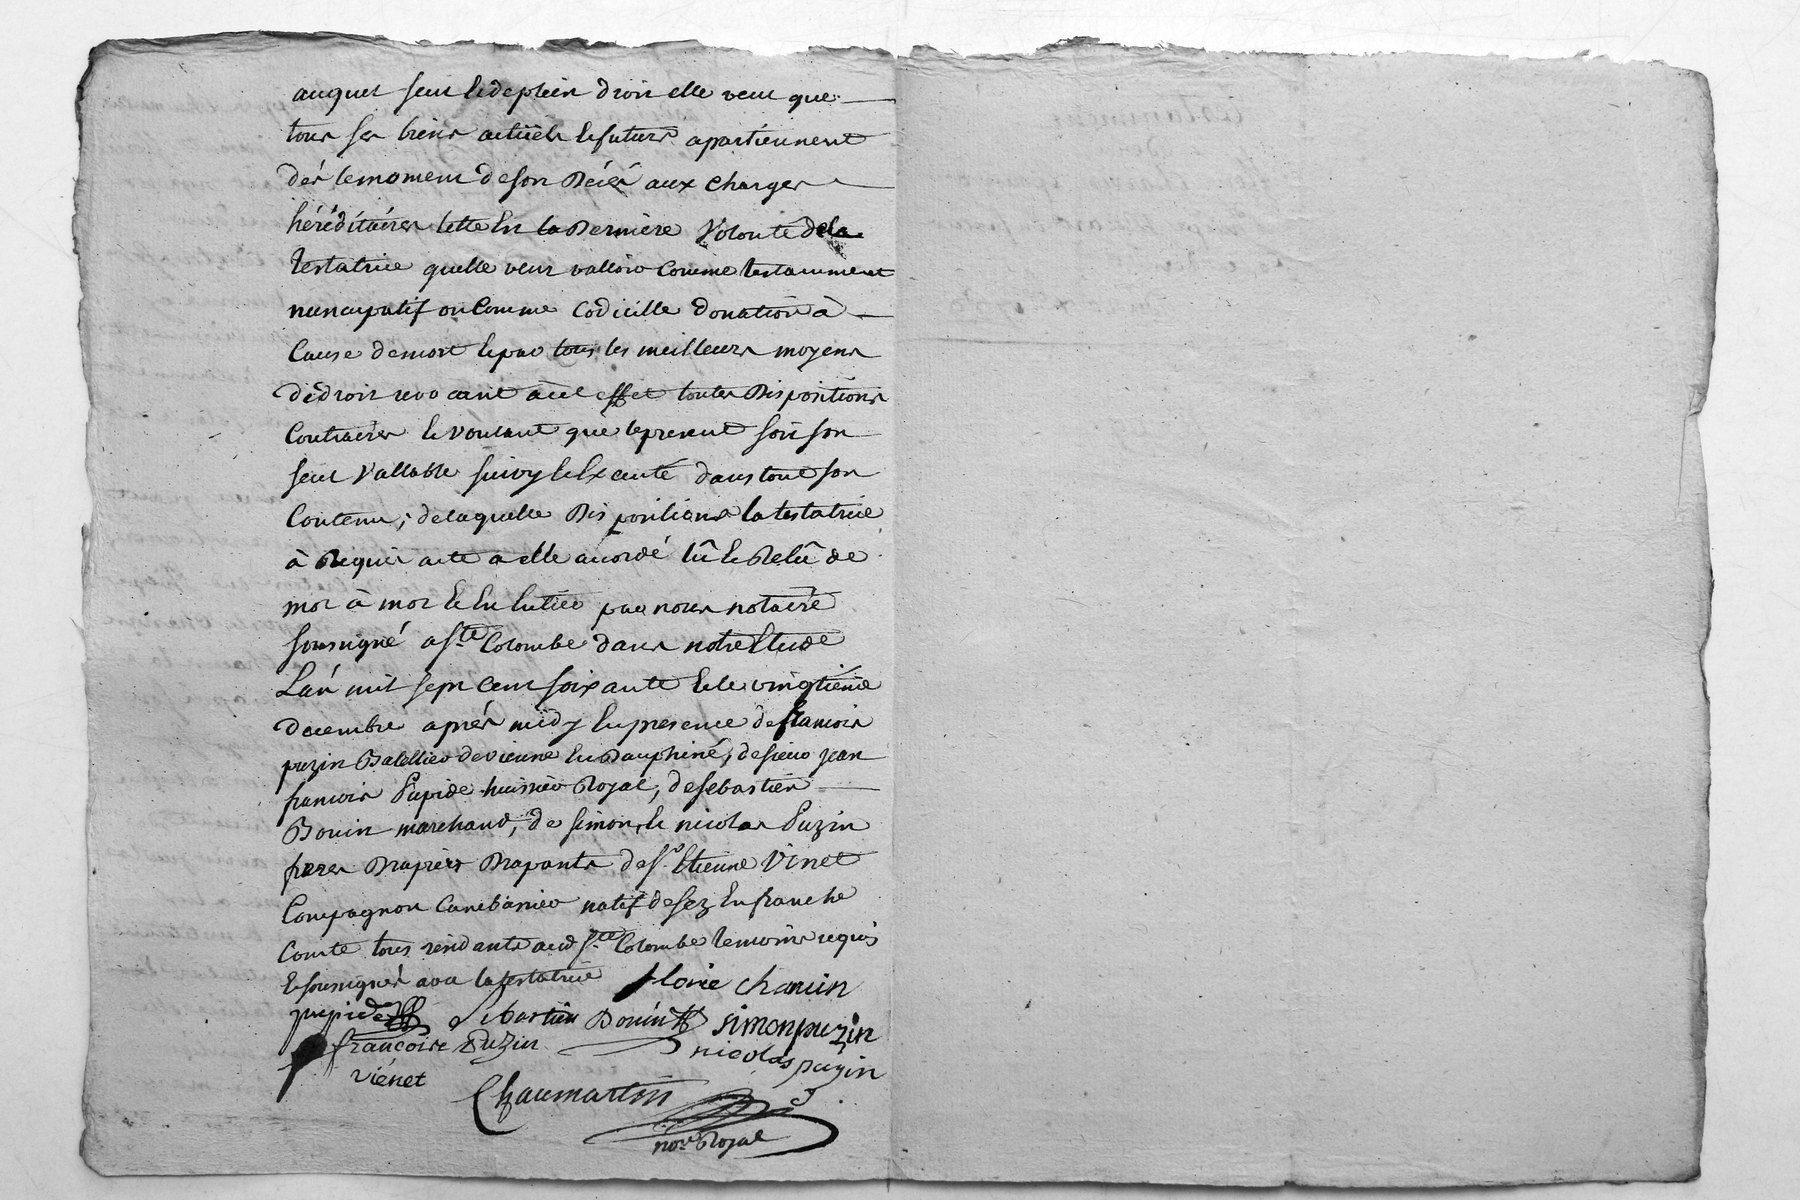 auquel seul & de plein droit elle veut que
tous ses biens actüels & futurs appartiennent
dés le moment de son Décés aux charges
héréditaires cette En la Derniére Volonté de la
testatrice quelle veut valloir Comme testamment
nuncupatif ou Comme Codicille donation à
Cause de mort & par tous les meilleurs moyens
de droit revocant à cet effet toutes Dispositions
Contraires & voulant que le present soit son
seul Vallable suivy & Exécuté dans tout son
Contenu; de laquelle Dispositions la testatrice
à Requis acte a elle acordé lû & Relû de
mot à mot & En Entier par nous notaire
soussigné a Ste Colombe dans notre Etude
L'an mil sept cent soixante & le vingtiéme
decembre aprés midy En presence de francois
puzin Batellier de vienne En Dauphiné; de sieur jean
francois Pupide huissier Royal, de sebastien
Bonin marchand, de simon & nicolas Puzin
freres Drapiers Drapants de sr Etienne Vinet
Compagnon natif de sez En franche
Comté tous residants aud Ste Colombe temoins requis
& soussignés avec la testatrice florie chamin
pupide Sebastien Bonin simon puzin
francoise Puzin nicolas puzin
viénet
Chaumartin
nore Royal